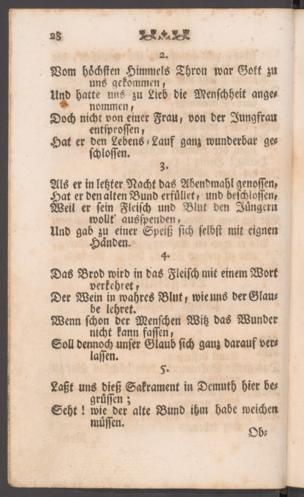 28
2.
Vom höchsten Himmels Thron war Gott zu
uns gekommen,
Und hatte uns zu Lieb die Menschheit ange-
nommen,
Doch nicht von einer Frau, von der Jungfrau
entsprossen,
Hat er den Lebens-Lauf ganz wunderbar ge-
schlossen.
3.
Als er in letzter Nacht das Abendmahl genossen,
Hat er den alten Bund erfüllet, und beschlossen,
Weil er sein Fleisch und Blut den Jüngern
wollt' ausspenden,
Und gab zu einer Speiß sich selbst mit eignen
Händen.
4.
Das Brod wird in das Fleisch mit einem Wort
verkehret,
Der Wein in wahres Blut, wie uns der Glau-
be lehret.
Wenn schon der Menschen Witz das Wunder
nicht kann fassen,
Soll dennoch unser Glaub sich ganz darauf ver-
lassen.
5.
Laßt uns dieß Sakrament in Demuth hier be-
grüssen;
Seht! wie der alte Bund ihm habe weichen
müssen.
Ob-